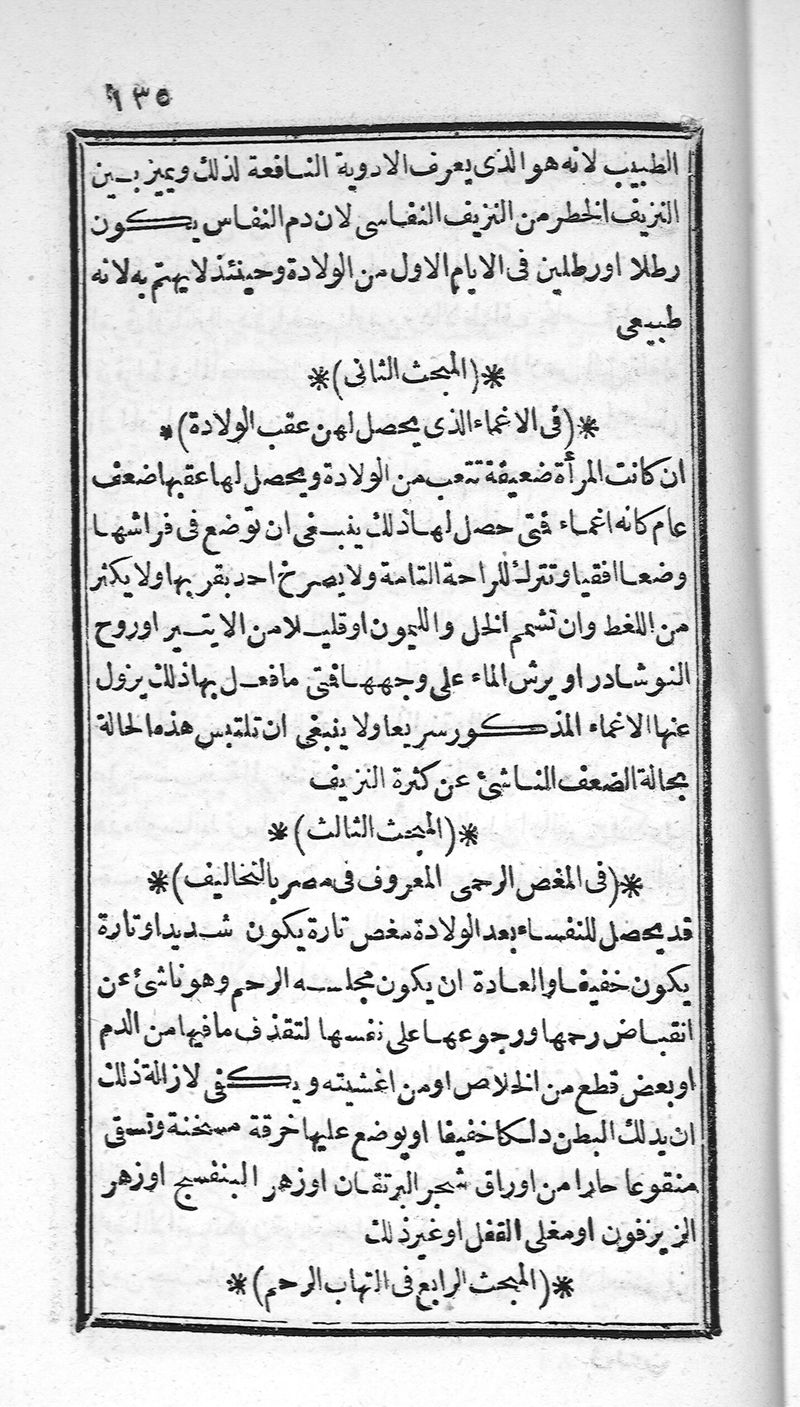 ١٣٥
الطبيب لانه هو الذى يعرف الادوية النافعة لذلك ويميز بين
النزيف الخطر من النزيف النفاسى لان دم النفاس يكون
رطلا اورطلين فى الايام الاول من الولادة وحينئذ لا يهتم به لانه
طبيعى
*(المبحث الثانى)*
*(فى الاغماء الذى يحصل لهن عقب الولادة)*
ان كانت المرأة ضعيفة تتعب من الولادة ويحصل لها عقبها ضعف
عام كانه اغماء فتى حصل لها ذلك ينبغى ان توضع فى فراشها
وضعا افقيا وتترك للراحة التامة ولا يصرخ احد بقربها ولا يكثر
من اللغط وان تشمم الخل والليمون اوقليلا من الايتير اوروح
النوشادر او يرش الماء على وجهها فتى ما فعل بها ذلك يزول
عنها الاغماء المذكور سريعا ولا ينبغى ان تلتبس هذه الحالة
بحالة الضعف الناشئ عن كثرة النزيف
*(المبحث الثالث)*
*(فى المغص الرحمى المعروف فى مصر بالنخاليف)*
قد يحصل للنفساء بعد الولادة مغص تارة يكون شديدا وتارة
يكون خفيفا والعادة ان يكون مجلسه الرحم وهو ناشئ عن
انقباض رحمها ورجوعها على نفسها لتقذف ما فيها من الدم
او بعض قطع من الخلاص اومن اغشيته ويكفى لازالة ذلك
ان يدلك البطن دلكا خفيفا او يوضع عليها خرقة مسخنة وتسقى
منقوعا حارا من اوراق شجر البرتقان اوزهر البنفسج اوزهر
الزيزفون او مغلى القفل او غير ذلك
*(المبحث الرابع فى التهاب الرحم)*